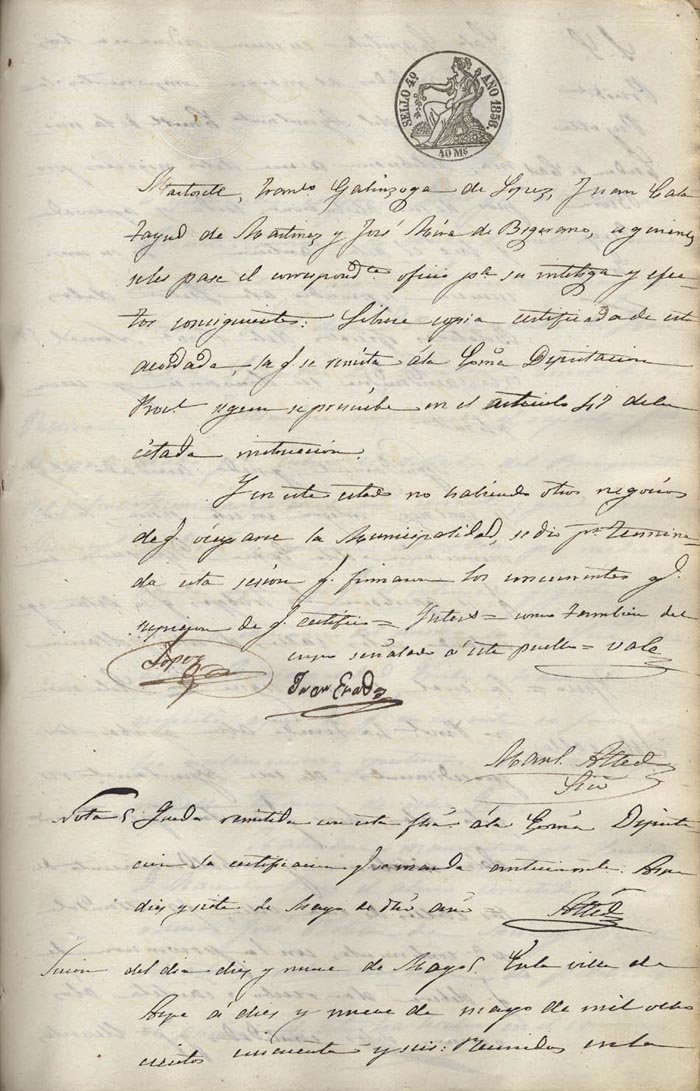 SELLO 4º AÑO 1856.
40 Ms
Galinsoga de Lopez, Juan Cala
tayud de Martinez y José Mira de Bigerano, a quienes
seles pase el correspondte oficio pa su intelíga y efec-
tos consiguientes: Librese copia certificada de este
acordada, la q. se remita ála Excma Diputacion
Provl. segun se prescribe en el articulo 47 dela
citada instruccion.
Y en este estado no habiendo otros negocios
de q. ocuparse la Municipalidad, se dio pr. termina
da esta sesion q. firmaron los concurrentes q.
supieron de q. certifico = Interls = como tambien del
cupo señalado á este pueblo = vale
Lopez
Juan
Manl. Alted
Srio
Nota Queda remitida con esta fha. ála Excma Diputa
cion la certificacion q. se manda anteriormte. Aspe
diez y siete de Mayo de dho año
Alted
Sesion del dia diez y nueve de Mayo. Enla villa de
Aspe á diez y nueve de mayo de mil ocho
cientos cincuenta y seis: Reunidos enla